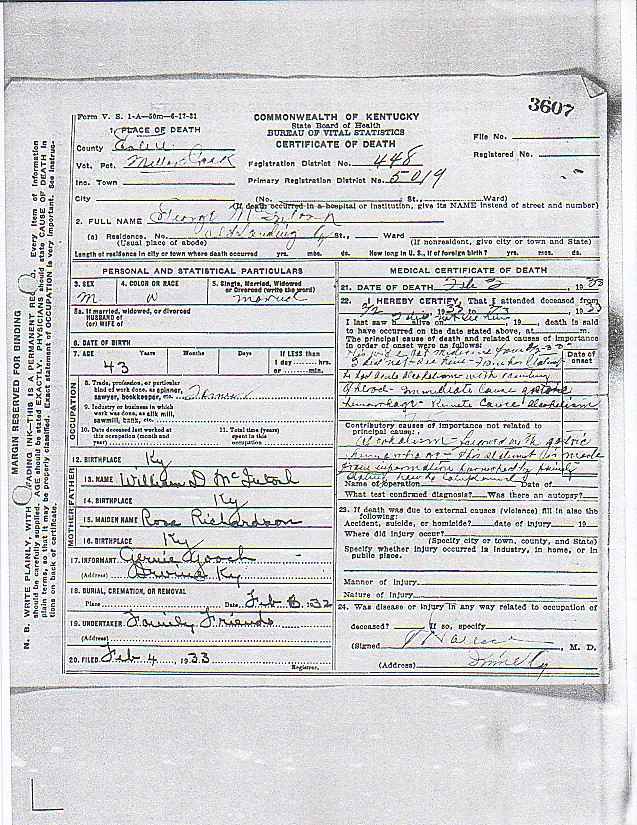 3607
Form V. S. 1-A—50m—6-17-31
COMMONWEALTH OF KENTUCKY
State Board of Health
BUREAU OF VITAL STATISTICS
CERTIFICATE OF DEATH
1. PLACE OF DEATH
County Estill
Vot. Pct. Miller Creek
Inc. Town
City (No. St., Ward)
File No.
Registered No.
Registration District No. 448
Primary Registration District No. 5019
(If death occurred in a hospital or institution, give its NAME instead of street and number)
2. FULL NAME George McIntosh
(a) Residence, No. Old Landing Ky St., Ward
(Usual place of abode) (If nonresident, give city or town and State)
Length of residence in city or town where death occurred yrs. mos. ds. How long in U. S., if of foreign birth? yrs. mos. ds.
PERSONAL AND STATISTICAL PARTICULARS
3. SEX 4. COLOR OR RACE 5. Single, Married, Widowed or Divorced (write the word)
M W married
5a. If married, widowed, or divorced
HUSBAND of
(or) WIFE of
6. DATE OF BIRTH
7. AGE Years Months Days If LESS than
1 day hrs.
or min.
43
OCCUPATION
8. Trade, profession, or particular
kind of work done, as spinner,
sawyer, bookkeeper, etc. Farmer
9. Industry or business in which
work was done, as silk mill,
sawmill, bank, etc.
10. Date deceased last worked at
this occupation (month and
year)
11. Total time (years)
spent in this
occupation
12. BIRTHPLACE Ky
FATHER
13. NAME William D McIntosh
14. BIRTHPLACE Ky
MOTHER
15. MAIDEN NAME Rosa Richardson
16. BIRTHPLACE Ky
17. INFORMANT Gernie Gooch
(Address) Irvine Ky
18. BURIAL, CREMATION, OR REMOVAL
Place Date Feb 3 1932
19. UNDERTAKER Family Friends
(Address)
20. FILED Feb 4, 1933
Registrar.
MEDICAL CERTIFICATE OF DEATH
21. DATE OF DEATH Feb 2, 1933
22. I HEREBY CERTIFY, That I attended deceased from
I last saw h alive on , 19 , death is said
to have occurred on the date stated above, at m.
The principal cause of death and related causes of importance
in order of onset were as follows:
Date of
onset
of blood - Immediate Cause gastric
hemorrhage - Remote Cause Alcoholism
Contributory causes of importance not related to
principal cause:
Alcoholism
This statement is made
from information furnished by family
Name of operation Date of
What test confirmed diagnosis? Was there an autopsy?
23. If death was due to external causes (violence) fill in also the
following:
Accident, suicide, or homicide? date of injury 19
Where did injury occur?
(Specify city or town, county, and State)
Specify whether injury occurred in industry, in home, or in
public place.
Manner of injury
Nature of injury
24. Was disease or injury in any way related to occupation of
deceased? If so, specify
(Signed , M. D.
(Address) Irvine Ky
MARGIN RESERVED FOR BINDING
N. B. WRITE PLAINLY, WITH FADING INK—THIS IS A PERMANENT RECORD. Every item of information
should be carefully supplied. AGE should be stated EXACTLY. PHYSICIANS should state CAUSE OF DEATH in
plain terms, so that it may be properly classified. Exact statement of OCCUPATION is very important. See instruc-
tions on back of certificate.